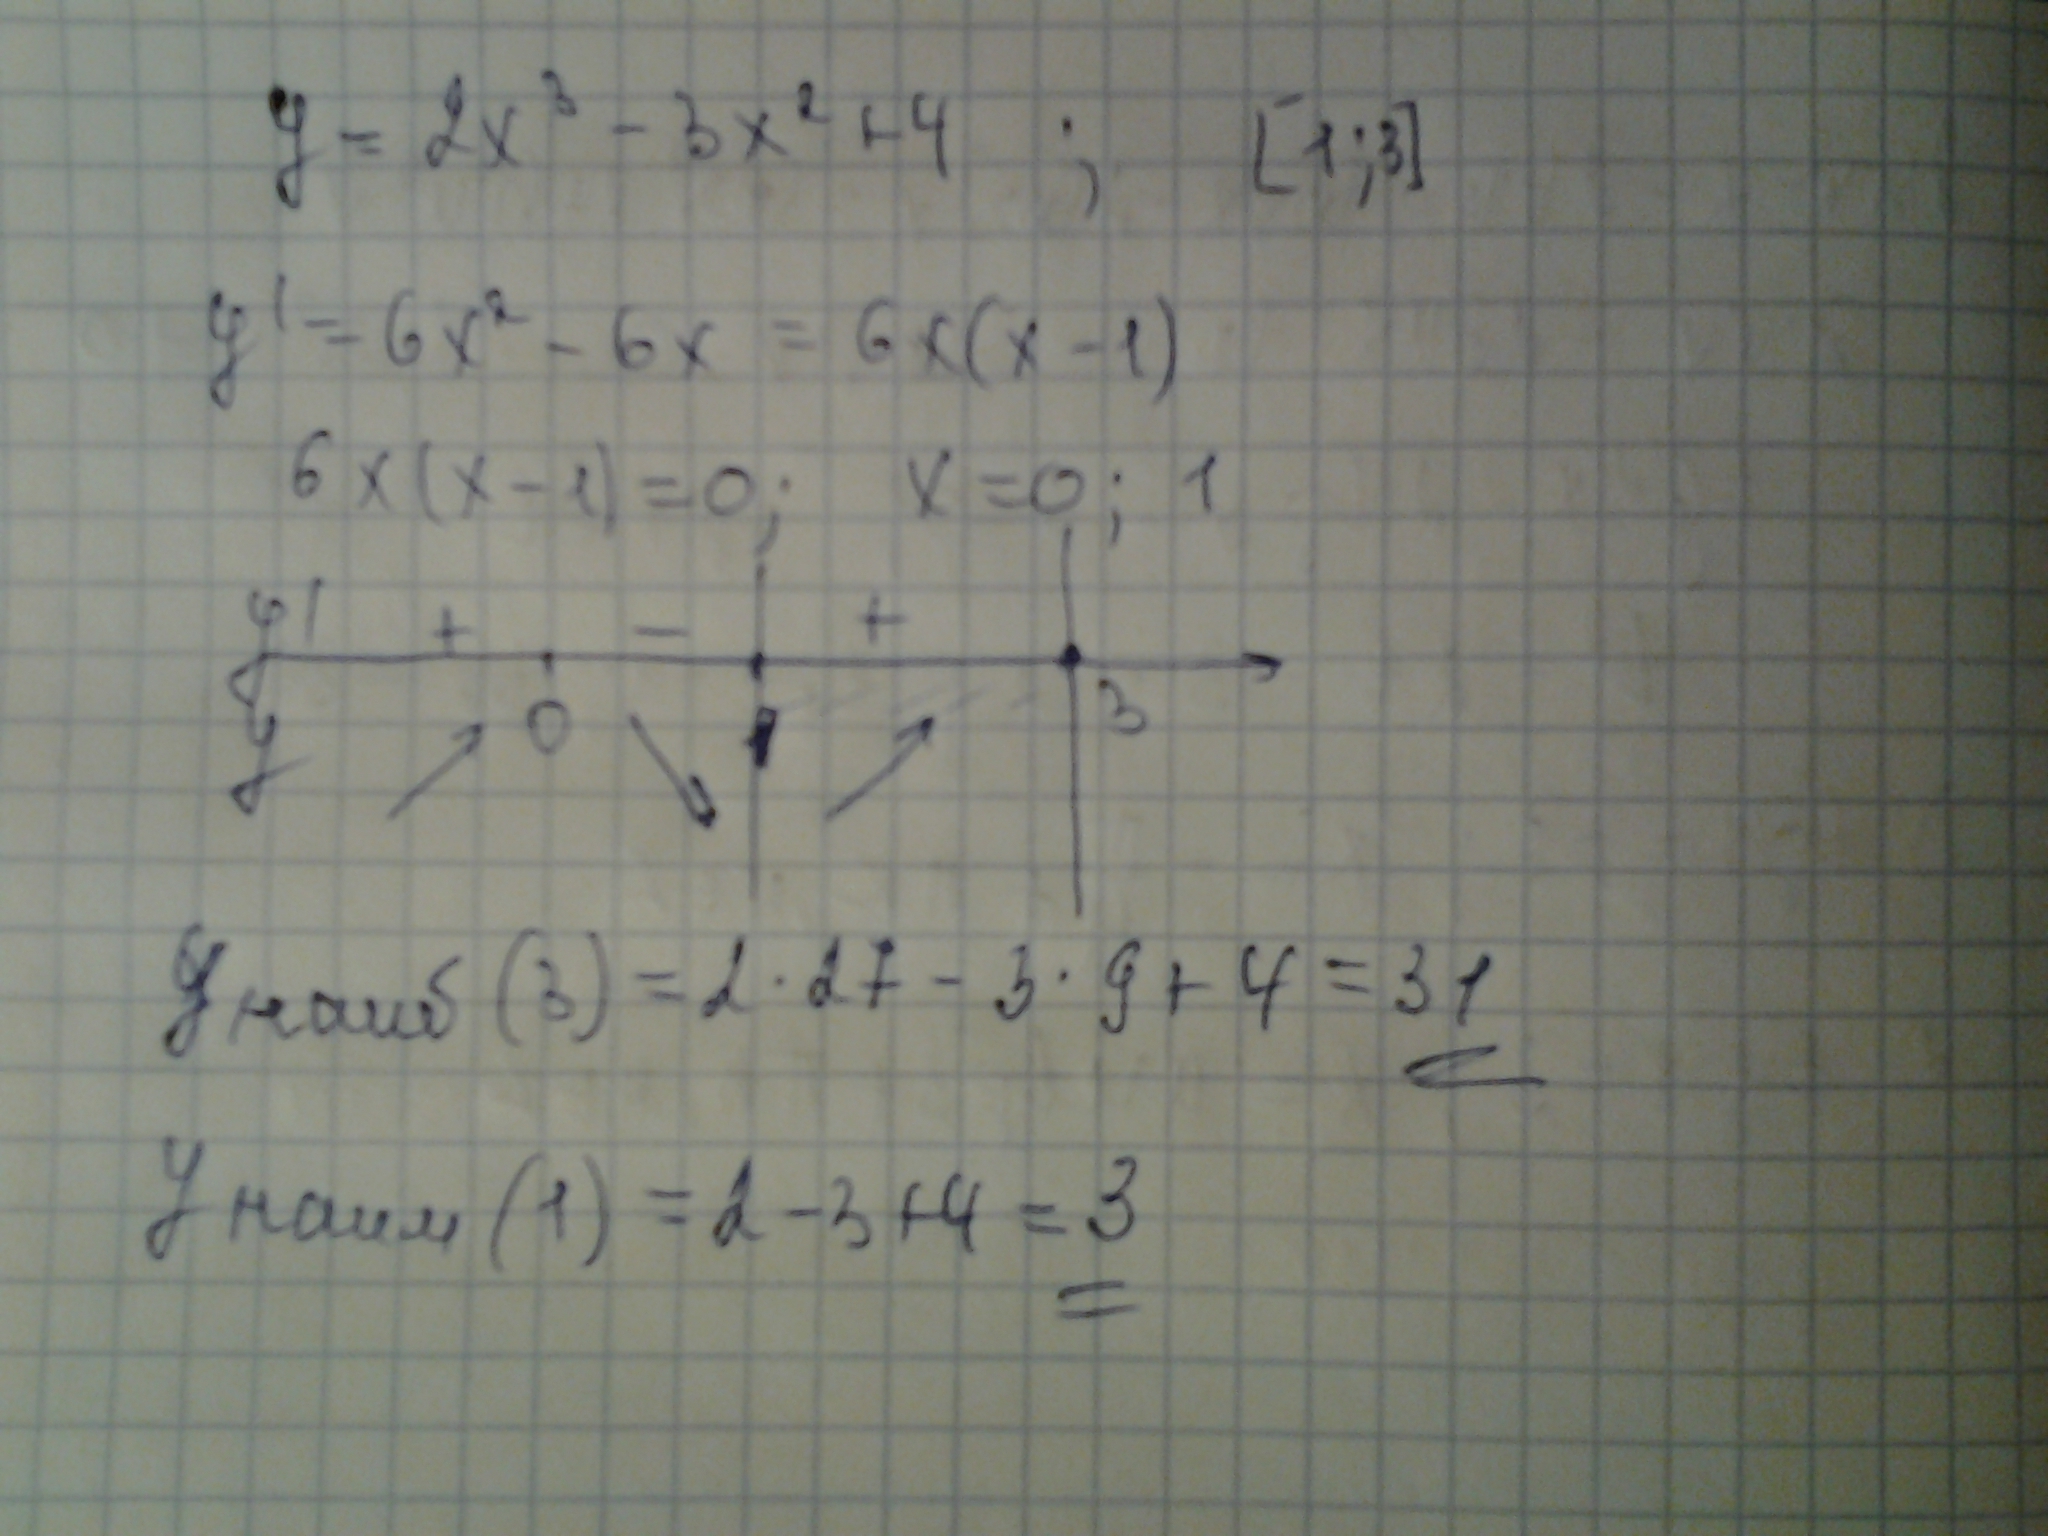 y = 2x³ - 3x² + 4 ; [1;3]
y' = 6x² - 6x = 6x(x-1)
6x(x-1) = 0; x = 0; 1
y' + - +
0 1 3
y
y наиб (3) = 2·27 - 3·9 + 4 = 31
y наим (1) = 2 - 3 + 4 = 3